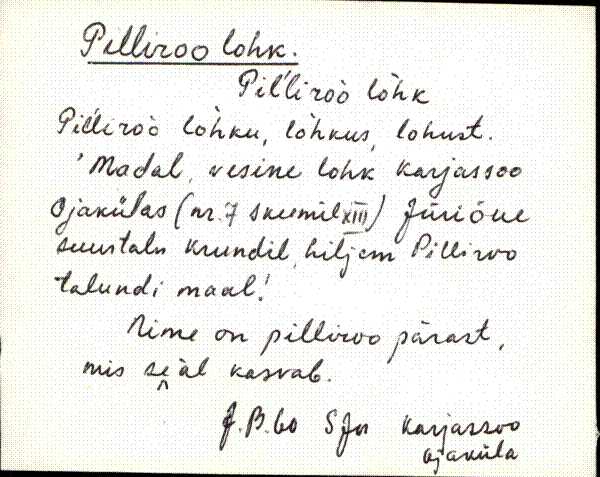 Pilliroo lohk.
Pil'liròò lòhk
Pil'liròò lòhku, lòhkus, lohust.
'Madal, vesine lohk Karjassoo
Ojakülas (nr. 7 skeemil XIII) Jüriõue
suurtalu krundil, hiljem Pilliroo
talundi maal.'
Nime on pilliroo pärast,
mis seäl kasvab.
Karjassoo
Ojaküla